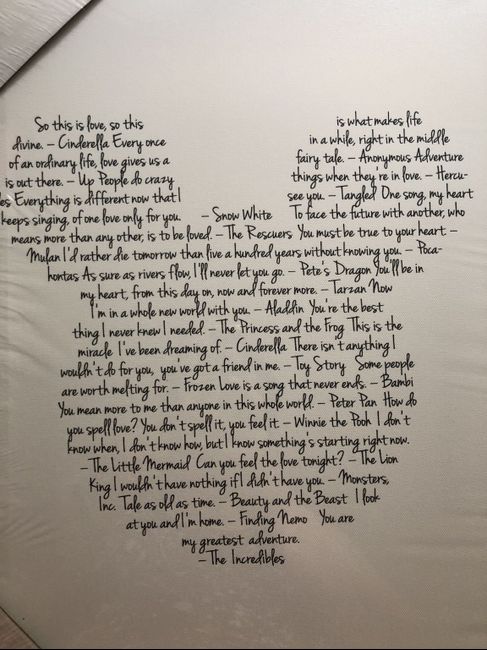 So this is love, so this is what makes life
divine. – Cinderella Every once in a while, right in the middle
of an ordinary life, love gives us a fairy tale. – Anonymous Adventure
is out there. – Up People do crazy things when they're in love. – Hercu-
es Everything is different now that I see you. – Tangled One song, my heart
keeps singing, of one love only for you. – Snow White To face the future with another, who
means more than any other, is to be loved. – The Rescuers You must be true to your heart –
Mulan I'd rather die tomorrow than live a hundred years without knowing you. – Poca-
hontas As sure as rivers flow, I'll never let you go. – Pete's Dragon You'll be in
my heart, from this day on, now and forever more. – Tarzan Now
I'm in a whole new world with you. – Aladdin You're the best
thing I never knew I needed. – The Princess and the Frog This is the
miracle I've been dreaming of. – Cinderella There isn't anything I
wouldn't do for you, you've got a friend in me. – Toy Story Some people
are worth melting for. – Frozen Love is a song that never ends. – Bambi
You mean more to me than anyone in this whole world. – Peter Pan How do
you spell love? You don't spell it, you feel it – Winnie the Pooh I don't
know when, I don't know how, but I know something's starting right now.
– The Little Mermaid Can you feel the love tonight? – The Lion
King I wouldn't have nothing if I didn't have you. – Monsters,
Inc. Tale as old as time. – Beauty and the Beast I look
at you and I'm home. – Finding Nemo You are
my greatest adventure.
– The Incredibles